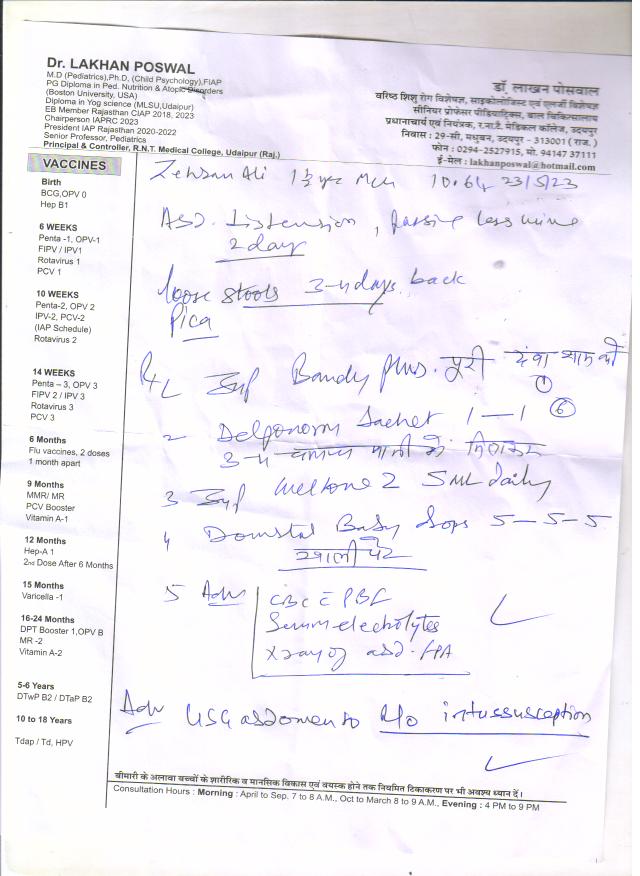 Dr. LAKHAN POSWAL
M.D (Pediatrics),Ph.D, (Child Psychology),FIAP
PG Diploma in Ped. Nutrition & Atopic Disorders
(Boston University, USA)
Diploma in Yog science (MLSU,Udaipur)
EB Member Rajasthan CIAP 2018, 2023
Chairperson IAPRC 2023
President IAP Rajasthan 2020-2022
Senior Professor, Pediatrics
Principal & Controller, R.N.T. Medical College, Udaipur (Raj.)
डॉ लाखन पोसवाल
वरिष्ठ शिशु रोग विशेषज्ञ, साइकोलोजिस्ट एवं एलर्जी विशेषज्ञ
सीनियर प्रोफेसर पीडियाट्रिक्स, बाल चिकित्सालय
प्रधानाचार्य एवं नियंत्रक, र.ना.टै. मेडिकल कॉलेज, उदयपुर
निवास : 29-सी, मधुबन, उदयपुर - 313001 ( राज. )
फोन : 0294-2527915, मो. 94147 37111
ई-मेल : lakhanposwal@hotmail.com
VACCINES
Birth
BCG,OPV 0
Hep B1
6 WEEKS
Penta -1, OPV-1
FIPV / IPV1
Rotavirus 1
PCV 1
10 WEEKS
Penta-2, OPV 2
IPV-2, PCV-2
(IAP Schedule)
Rotavirus 2
14 WEEKS
Penta – 3, OPV 3
FIPV 2 / IPV 3
Rotavirus 3
PCV 3
6 Months
Flu vaccines, 2 doses
1 month apart
9 Months
MMR/ MR
PCV Booster
Vitamin A-1
12 Months
Hep-A 1
2nd Dose After 6 Months
15 Months
Varicella -1
16-24 Months
DPT Booster 1,OPV B
MR -2
Vitamin A-2
5-6 Years
DTwP B2 / DTaP B2
10 to 18 Years
Tdap / Td, HPV
Ali 1½ yr Mch 10.64 23/5/23
Abd. distension, passing less urine
2 day
loose stools 3-4 days back
Pica
Syp Bandy plus. पूरी दवा शाम को
1
2 Sachet 1 — 1 6
3-4 चम्मच पानी में मिलाकर
3 Syp 5 ML daily
4 Domstal Baby drops 5 — 5 — 5
खाली पेट
5 Adv CBC c PBF
Serum electrolytes
X ray of abd. FPA
Adv USG abdomen to R/o intussusception
बीमारी के अलावा बच्चों के शारीरिक व मानसिक विकास एवं वयस्क होने तक नियमित टिकाकरण पर भी अवश्य ध्यान दें।
Consultation Hours : Morning : April to Sep. 7 to 8 A.M., Oct to March 8 to 9 A.M., Evening : 4 PM to 9 PM